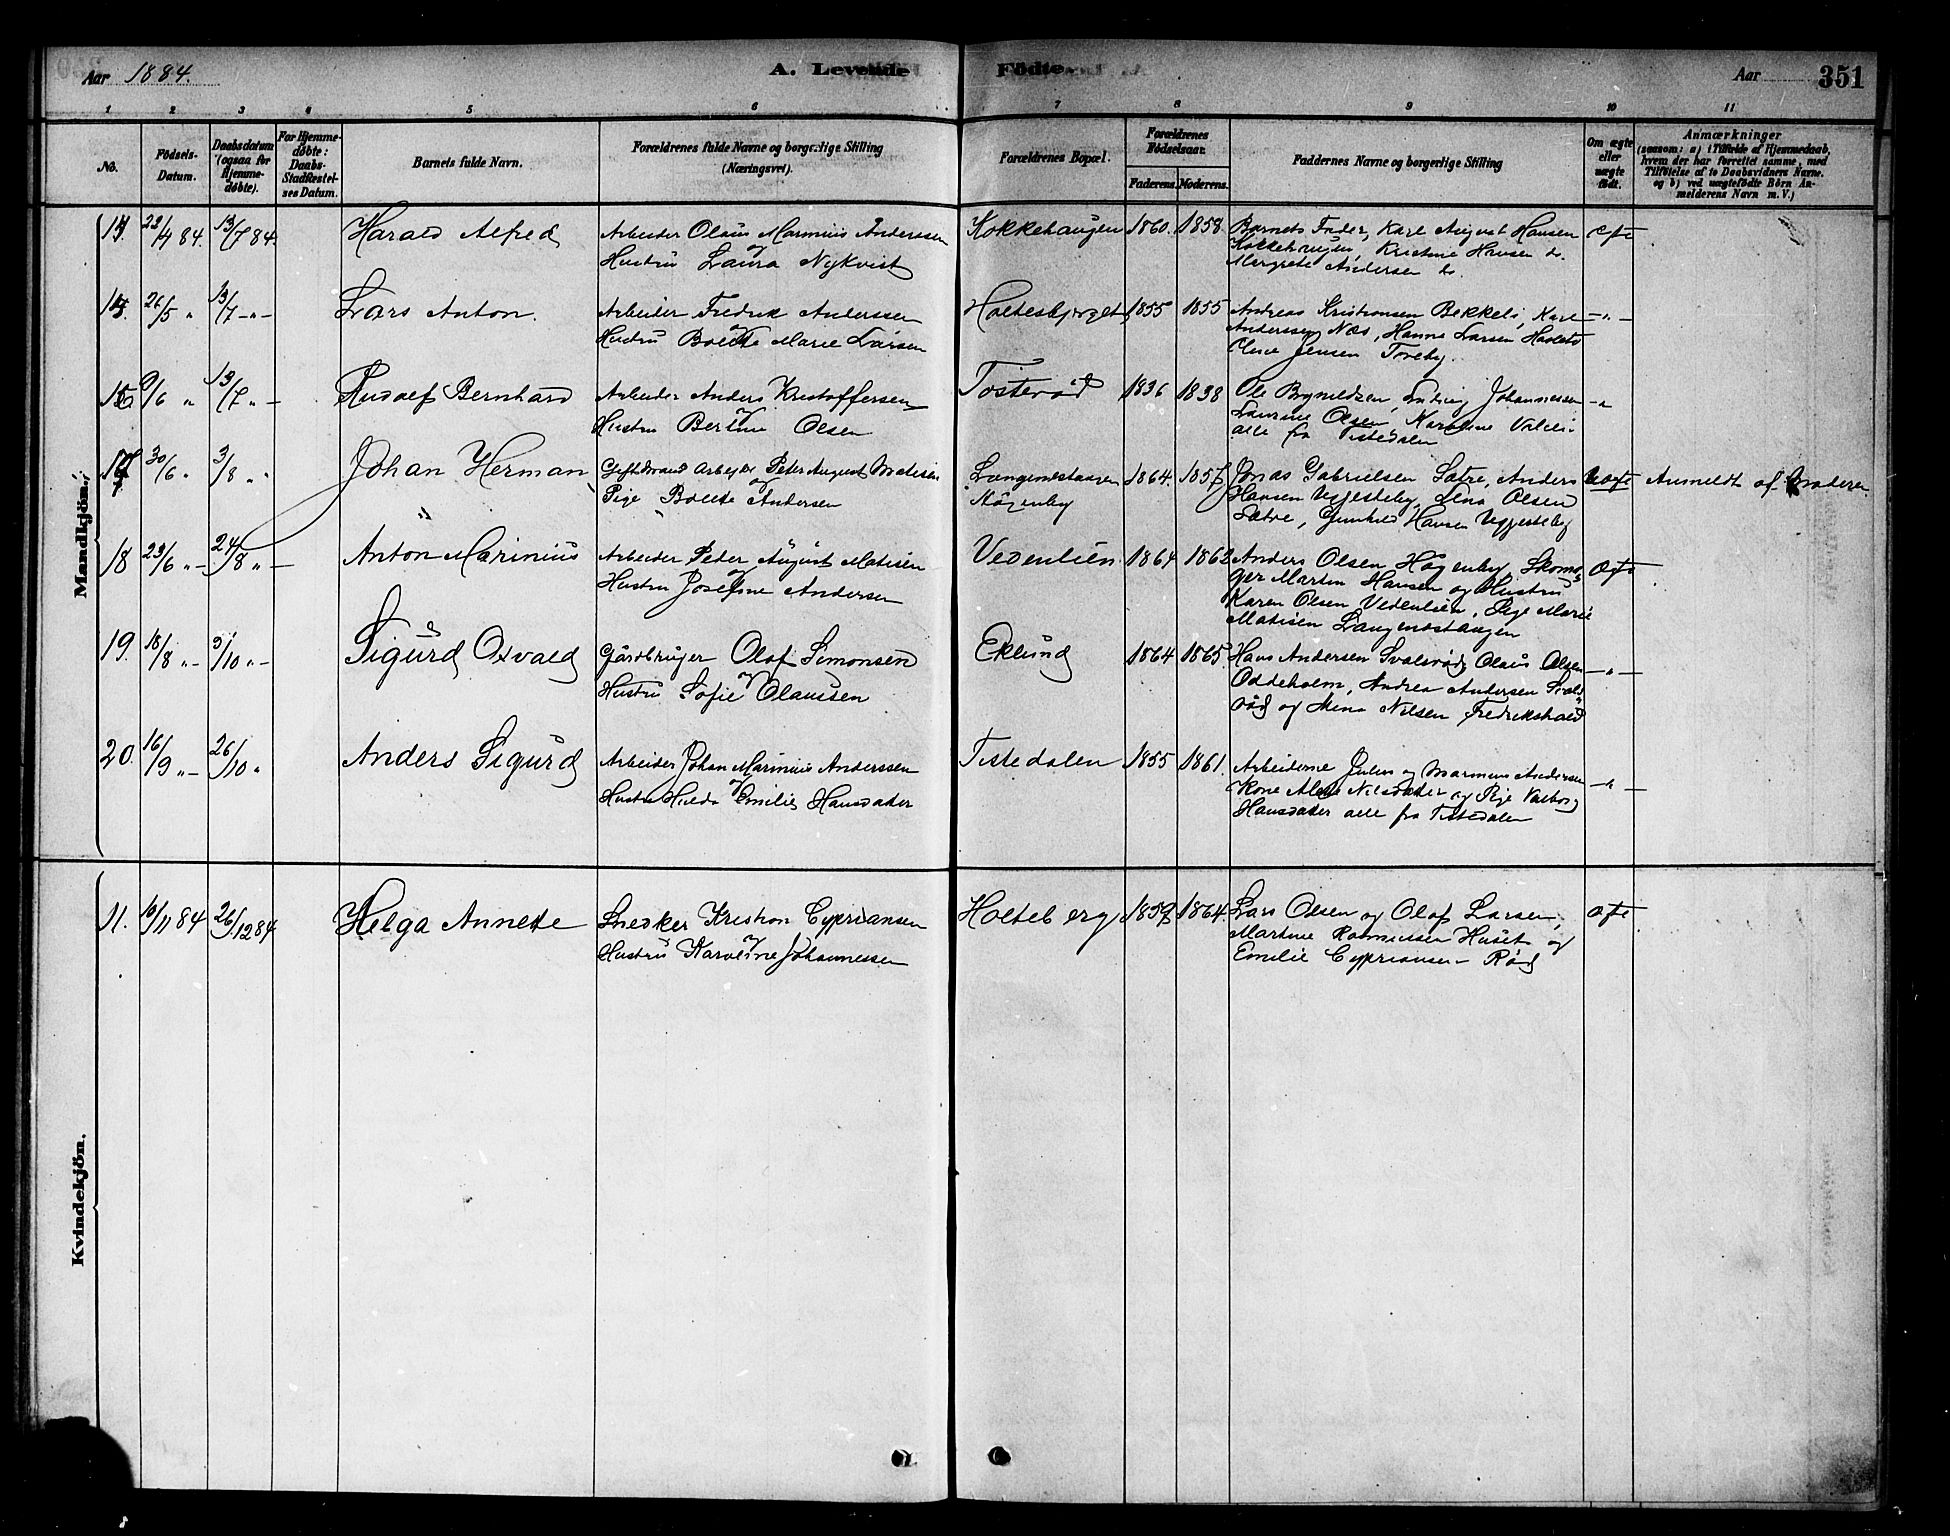 Aar 1884.
A. Levende Födte.
Aar 351
1 2 3 4 5 6 7 8 9 10 11
No.
Födsels-Datum.
Daabsdatum (ogsaa for Hjemme-döbte).
For Hjemme-döbte: Daabs-Stadfæstel-ses Datum.
Barnets fulde Navn.
Forældrenes fulde Navne og borgerlige Stilling (Næringsvei).
Forældrenes Bopæl.
Forældrenes Födselsaar.
Faderens. Moderens.
Faddernes Navne og borgerlige Stilling
Om ægte eller uægte födt.
Anmærkninger
(saasom: a) i Tilfælde af Hjemmedaab, hvem der har forrettet samme, med Tilföielse af to Daabsvidners Navne. og b) ved uægtefödte Börn An-melderens Navn m. V.)
Mandkjön.
14. 23/4 84. 13/7 84. Harald Alfred
Arbeider Olaus Marinius Anderssen
og
Hustru Laura Nykvist
Kokkehaugen 1860. 1858.
Barnets Fader, Karl August Hansen
Kokkehaugen, Kristine Hansen do.
Margrete Andersen do.
ægte
15. 26/5 " 13/7 -"- Lars Anton.
Arbeider Fredrik Anderssen
og
Hustru Bolette Marie Larsen
Holtesbjerget 1855 1855
Andreas Kristiansen Bekkelö, Karl
Anderssen Næs, Hanne Larsen
Jensen Toreby.
-"-
16 9/6 " 13/7 "- Rudolf Bernhard
Arbeider Anders Kristoffersen
og
Hustru Bertine Olsen
Tosterød 1836 1838
Ole Brynildsen, Ludvig Johannessen
Laurine Olsen, Karoline
alle fra Tistedalen
-"
17 30/6 " 3/8 " " Johan Herman
Gift Mand Arbejder Peter August Matisen
og
Pige Bolette Andersen
Langenestangen 1864. 1857
Högenby
Jonas Gabrielsen Sætre, Anders
Hansen Veggesteby, Lina Olsen
Sætre, Gunhild Hansen Veggesteby
Uægte Anmeldt af Moderen
18 23/6 "- 24/8 "- Anton Marinius
Arbeider Peter August Matisen
og
Hustru Josefine Andersen
Vedenlien 1864 1862
Anders Olsen Högenby, Skoma-
ger Martin Hansen og Hustru
Karen Olsen Vedenlien, Pige Marie
Matisen Langenestangen
Ægte
19. 18/8 "- 5/10 "- Sigurd Osvald
Gårdbruger Olof Simonsen
og
Hustru Sofie Olaussen
Eklund 1864 1865
Hans Andersen Svalerød, Olaus Olsen
Oddeholm, Andrea Andersen Svale-
rød og Mina Nilsen Fredrikshald
-"-
20. 16/9 "- 26/10 " Anders Sigurd
Arbeider Johan Marinius Anderssen
og
Hustru Hulda Emilie Hansdatter
Tistedalen 1855 1861.
Arbeiderne Julius og Marinius Andersen
Kone Nilsdatter og Pige Valborg
Hansdatter alle fra Tistedalen
-"-
Kvindekjön.
11. 10/11 84 26/12 84 Helga Annette
Snedker Kristian Cypriansen
og
Hustru Karoline Johannessen
Holteberg 1857 1864.
Lars Olsen og Olof Larsen,
Martine Rasmussen Huset og
Emilie Cypriansen Röd
ægte